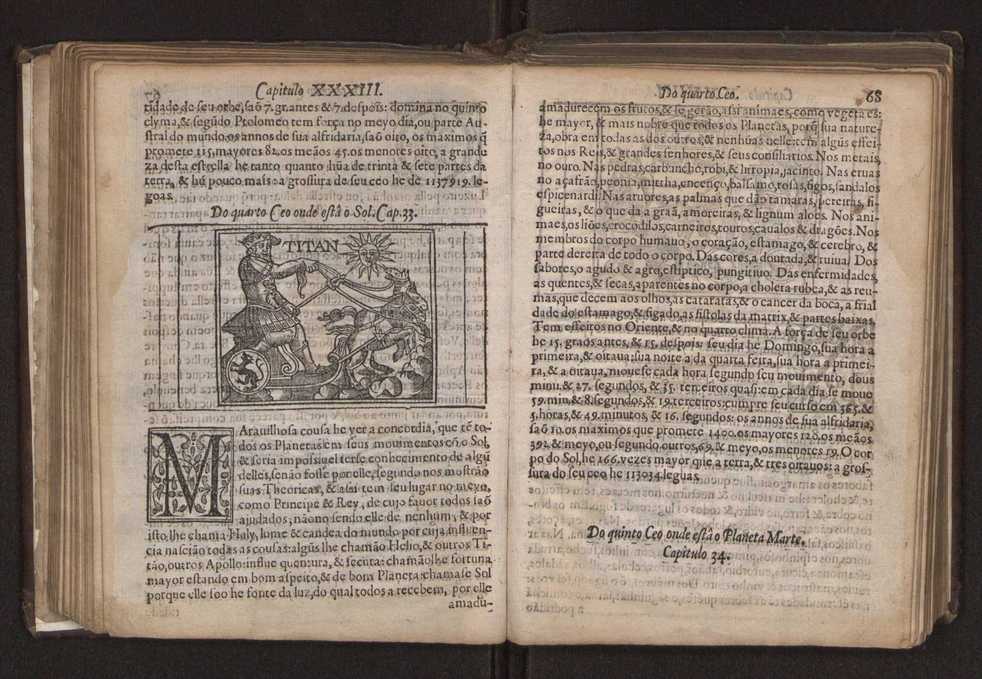 Capitulo XXXIII.
tidade de seu orbe, saõ 7. gr. antes & 7. despois: domina no quinto
clyma, & segũdo Ptolomeo tem força no meyo dia, ou parte Au-
stral do mundo, os annos de sua alfridaria, saõ oito, os maximos q̃
promete 115. mayores 82. os meãos 45. os menores oito, a grande
za desta estrella he tanto quanto hũa de trinta & sete partes da
terra, & hũ pouco mais: a grossura de seu ceo he de 1137919. le-
goas.
Do quarto Ceo onde està o Sol. Cap. 33.
TITAN
MArauilhosa cousa he ver a concordia, que tẽ to-
dos os Planetas em seus mouimentos cõ o Sol,
& seria impossiuel terse conhecimento de algũ
delles, senão fosse por elle, segundo nos mostrão
suas Theoricas, & assi tem seu lugar no meyo,
como Principe & Rey, de cujo fauor todos saõ
ajudados, não no sendo elle de nenhum, & por
isto lhe chama Haly, lume & candea do mundo por cuja influen-
cia nascião todas as cousas: algũs lhe chamão Helio, & outros Ti-
tão, outros Apollo: influe quentura, & secura: chamãolhe fortuna
mayor estando em bom aspeito, & de bom Planeta: chamase Sol
porque elle soo he fonte da luz, do qual todos a recebem, por elle
amadu-
Do quarto Ceo. 68
amadurecem os frutos, & se gerão, assi animaes, como vegetaes:
he mayor, & mais nobre que todos os Planetas, porq̃ sua nature-
za, obra em todas as dos outros, & nenhũas nelle: tem algũs effei-
tos nos Reis, & grandes senhores, & seus consiliarios. Nos metais,
no ouro. Nas pedras, carbuncho, robi, & litropia, jacinto. Nas eruas
no açafrão, peonia, mirrha, encenço, balsamo, rosas, figos, sandalos
espicenardi. Nas aruores, as palmas que dão tamaras, pereiras, fi-
gueiras, & o que da a graã, amoreiras, & lignum aloes. Nos ani-
maes, os liões, crocodilos, carneiros, touros, caualos & dragões. Nos
membros do corpo humano, o coração, estamago, & cerebro, &
parte dereita de todo o corpo. Das cores, a dourada, & ruiua. Dos
sabores, o agudo & agro, estiptico, pungitiuo. Das enfermidades,
as quentes, & secas, aparentes no corpo, a cholera rubea, & as reu-
mas, que decem aos olhos, as cataratas, & o cancer da boca, a frial
dade do estamago, & figado, as fistolas da matrix, & partes baixas.
Tem effeitos no Oriente, & no quarto clima. A força de seu orbe
he 15. graos antes, & 15. despois: seu dia he Domingo, sua hora a
primeira, & oitaua; sua noite a da quarta feita, sua hora a primei-
ra, & a oitaua, mouese cada hora segundo seu mouimento, dous
minu. & 27. segundos, & 35. terceiros quasi: em cada dia se moue
59. min. & 8. segundos, & 19. terceiros: cumpre seu curso em 365. &
5. horas, & 49. minutos, & 16. segundos: os annos de sua alfridaria,
saõ 10. os maximos que promete 1400. os mayores 120. os meãos
39. & meyo, ou segundo outros, 69. & meyo, os menores 19. O cor
po do Sol, he 166. vezes mayor que a terra, & tres oitauos: a gros-
sura do seu ceo he 113034. leguas.
Do quinto Ceo onde està o Planeta Marte.
Capitulo 34.